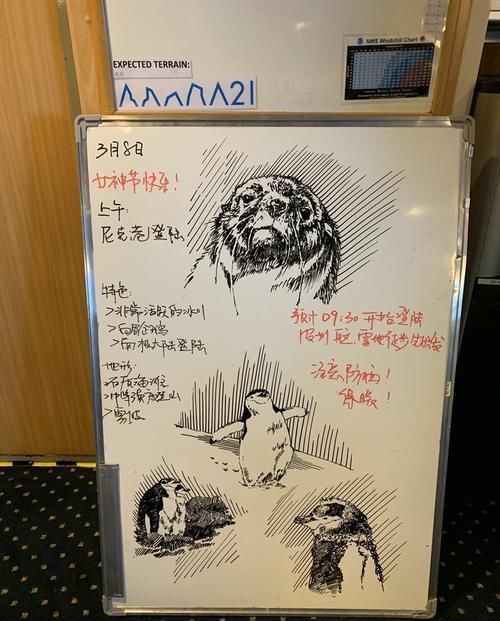 EXPECTED TERRAIN:
NWS Windchill Chart
3月8日
女神节快乐!
上午:
尼克港登陆
特色:
>非常活跃的冰川
>白眉企鹅
>南极大陆登陆
地形:
>石灰海滩
>中等强度登山
>雪坡
预计 09:30 开始登陆
雪地徒步先出发
注意防晒!
保暖!